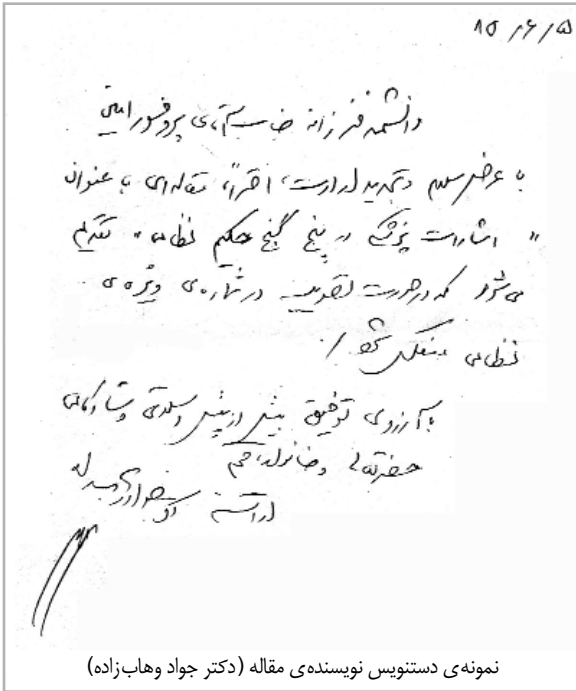 ۸۵/۶/۵
دانشمند فرزانه جناب آقای پروفسور امینی
با عرض سلام و تجدید ارادت، احتراماً، مقاله‌ای با عنوان
« اشارات پزشکی در پنج گنج حکیم نظامی » تقدیم
می‌شود که در صورت تصویب در شماره‌ی ویژه‌ی
نظامی منعکس شود /
با آرزوی توفیق بیش از پیش و سلامتی و شادکامی
حضرتعالی و خانواده محترم
ارادتمند
نمونه‌ی دستنویس نویسنده‌ی مقاله (دکتر جواد وهاب‌زاده)